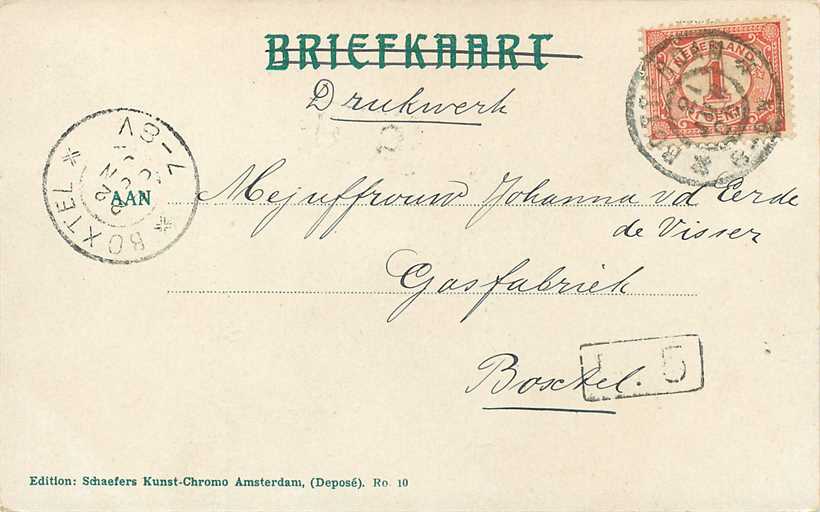 BRIEFKAART
Drukwerk
NEDERLAND
1
CENT
BOXTEL
22
7-8V
AAN
Mejuffrouw Johanna vd Eerde
de Visser
Gasfabriek
Boxtel.
L. 5
Edition: Schaefers Kunst-Chromo Amsterdam, (Deposé). Ro. 10